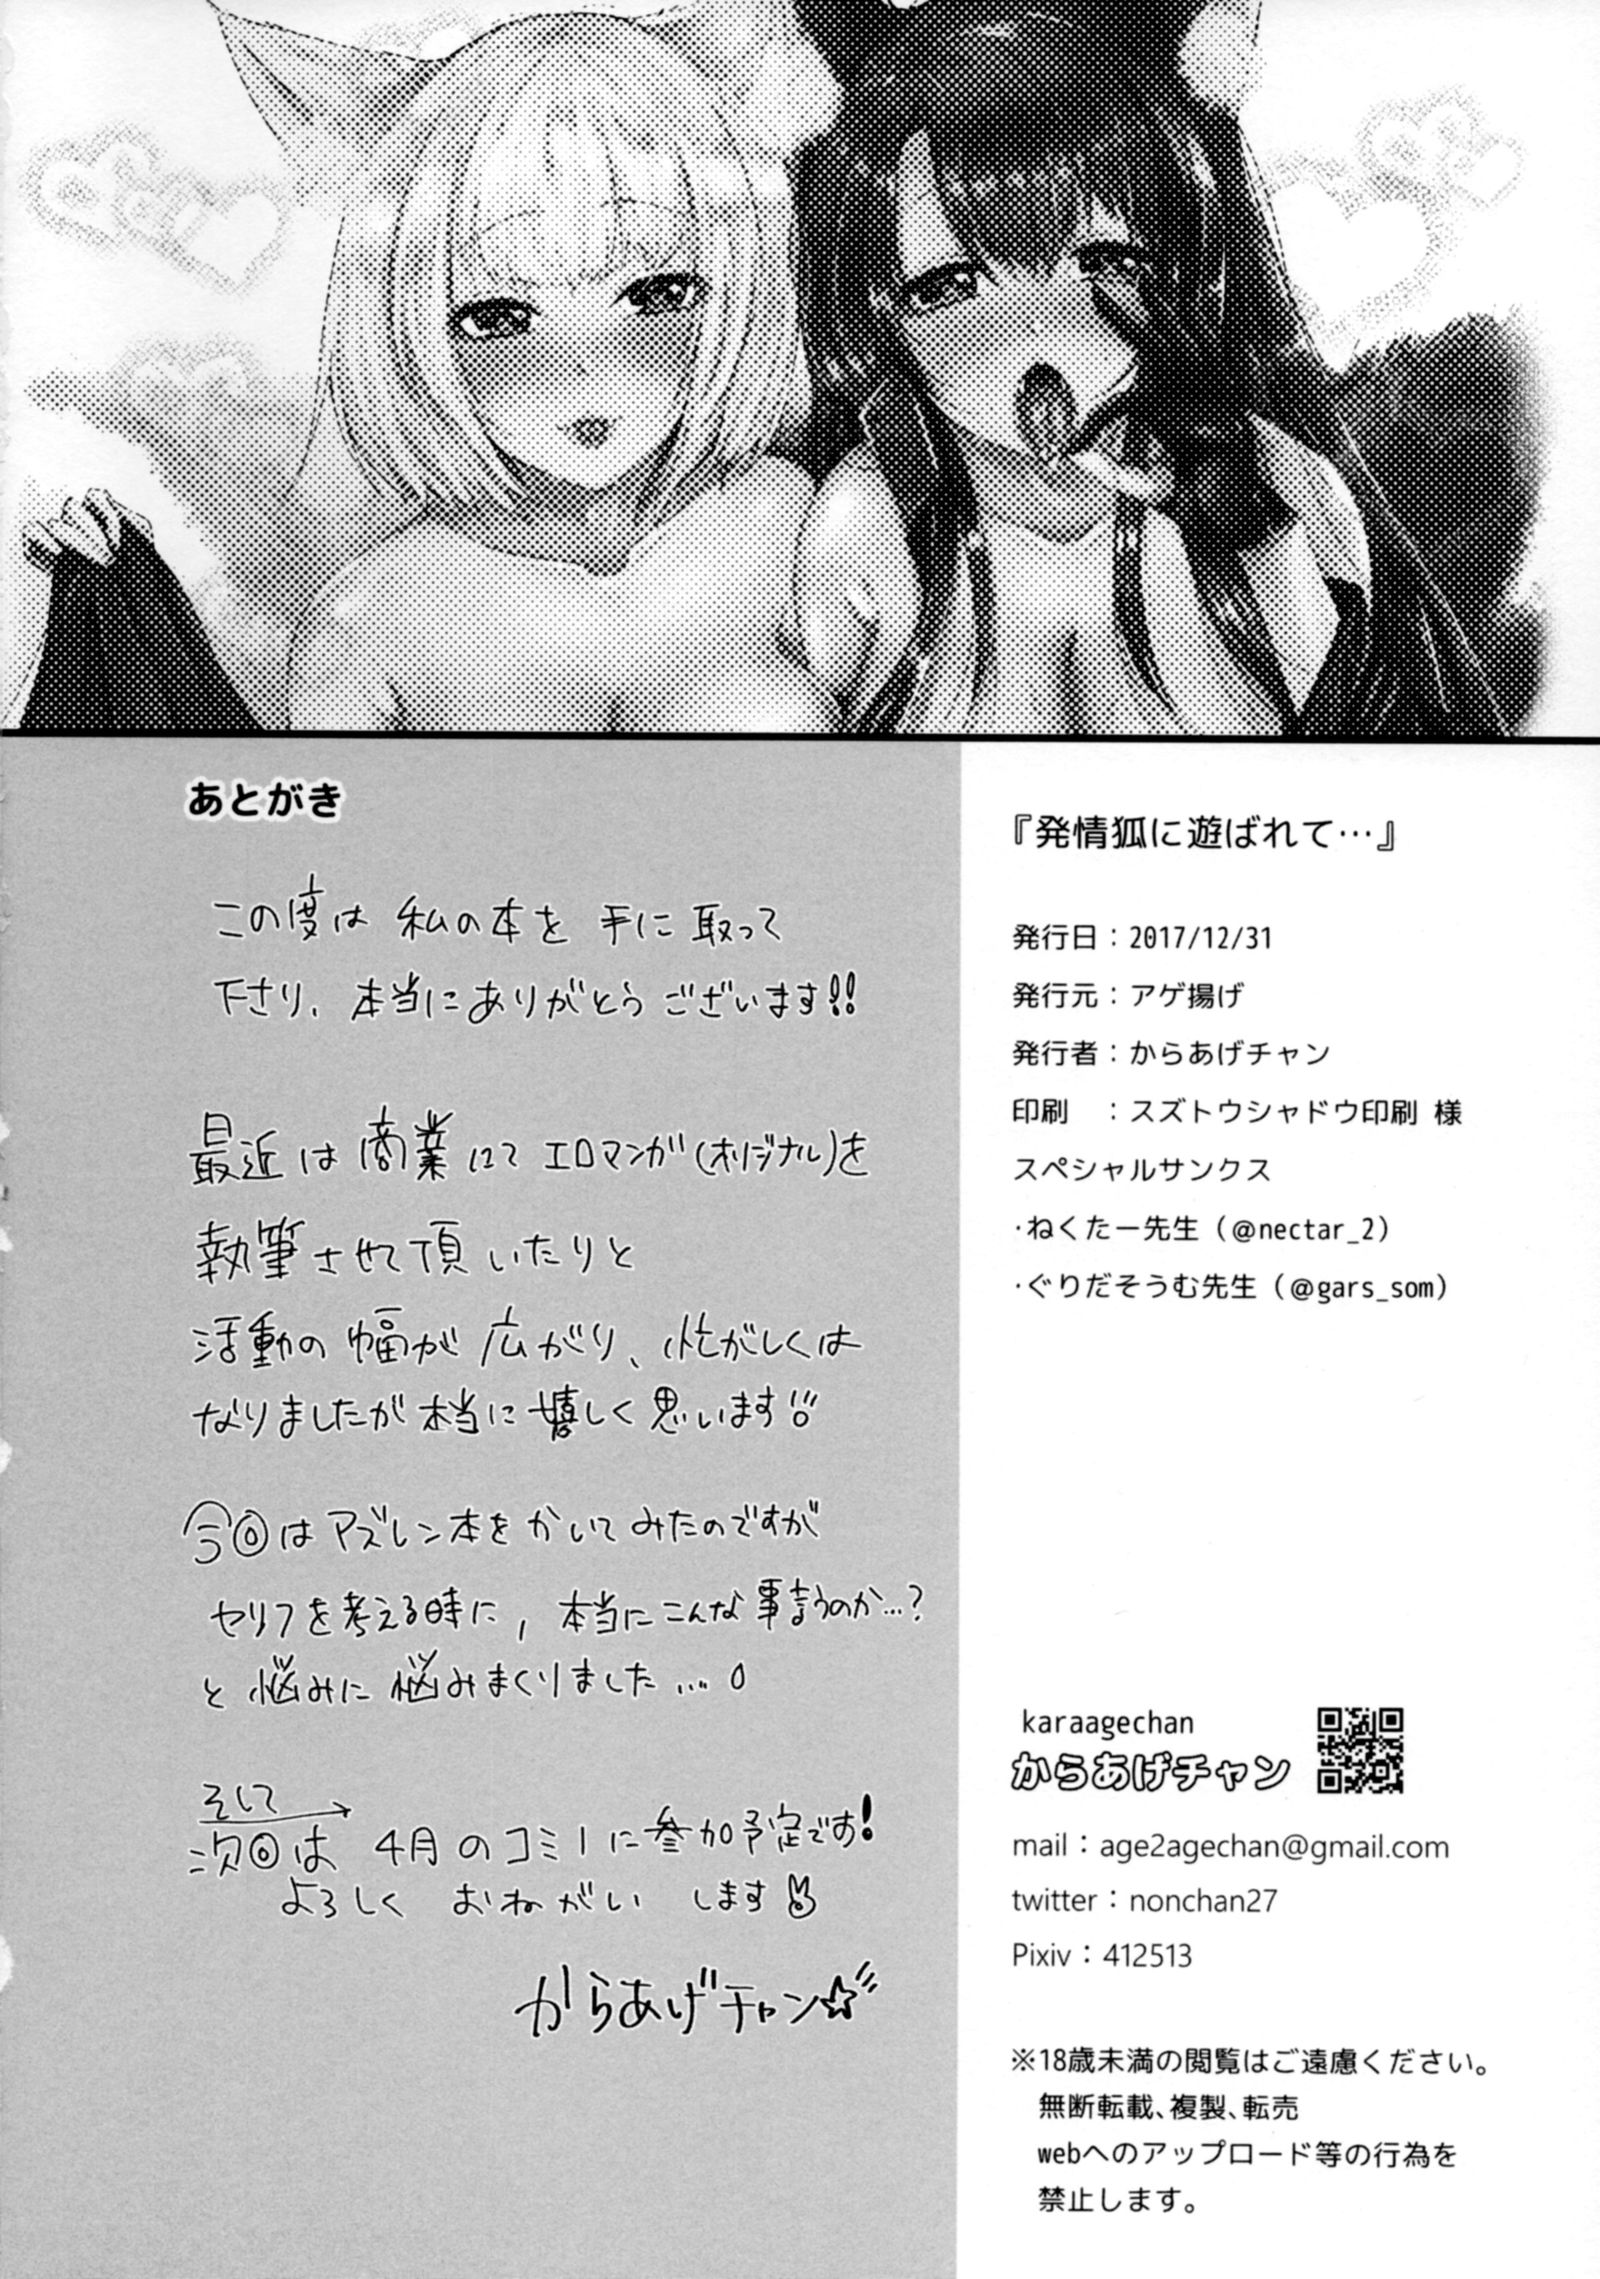 あとがき
この度は 私の本を 手に 取って
下さり、本当にありがとうございます!!
最近は 商業にて エロマンガ(オリジナル)を
執筆させて頂いたりと
活動の 幅が 広がり、忙がしくは
なりましたが本当に 嬉しく 思います!!
今回はアズレン本をかいてみたのですが
セリフを考える時に、本当にこんな事言うのか…?
と 悩みに 悩みまくりました…。
そして
次回は 4月のコミ1に参加予定です!
よろしく おねがい します
からあげチャン☆
『発情狐に遊ばれて…』
発行日：2017/12/31
発行元：アゲ揚げ
発行者：からあげチャン
印刷　：スズトウシャドウ印刷 様
スペシャルサンクス
・ねくたー先生（@nectar_2）
・ぐりだそうむ先生（@gars_som）
karaagechan
からあげチャン
mail：age2agechan@gmail.com
twitter：nonchan27
Pixiv：412513
※18歳未満の閲覧はご遠慮ください。
無断転載、複製、転売
webへのアップロード等の行為を
禁止します。